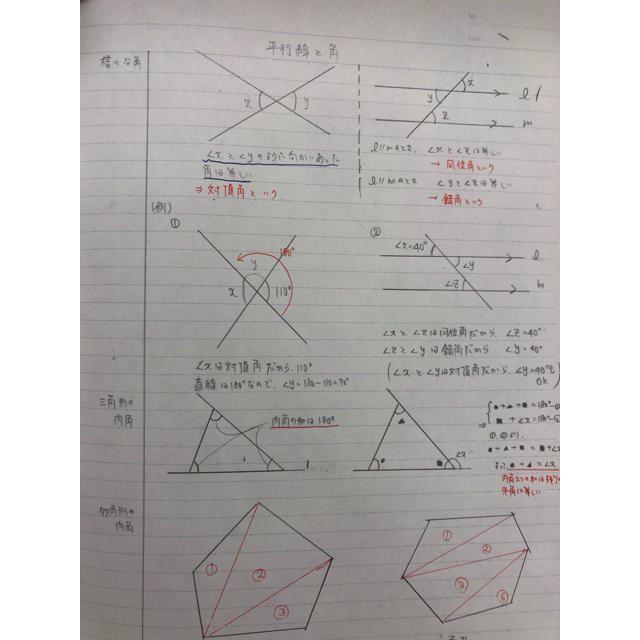 No.
Date
平行線と角
様々な角
x
y
∠xと∠yのように向かいあった
角は等しい
⇒対頂角という
x
y
z
l
m
l//mのとき、∠xと∠zは等しい
→同位角という
l//mのとき ∠yと∠zは等しい
→錯角という
(例)
①
180°
y
x
110°
∠xは対頂角だから、110°
直線は180°なので、∠y=180-110=70°
②
∠x=40°
∠y
∠z
l
m
∠xと∠zは同位角だから、∠z=40°
∠zと∠yは錯角だから ∠y=40°
(∠xと∠yは対頂角だから、∠y=40°も
ok)
三角形の
内角
内角の和は180°
∠x
⇒
●+▲+■=180°-①
■+∠x=180°-②
①、②より、
●+▲+■=■+∠x
●+▲=∠x
外角に等しい
多角形の
内角
①
②
③
①
②
③